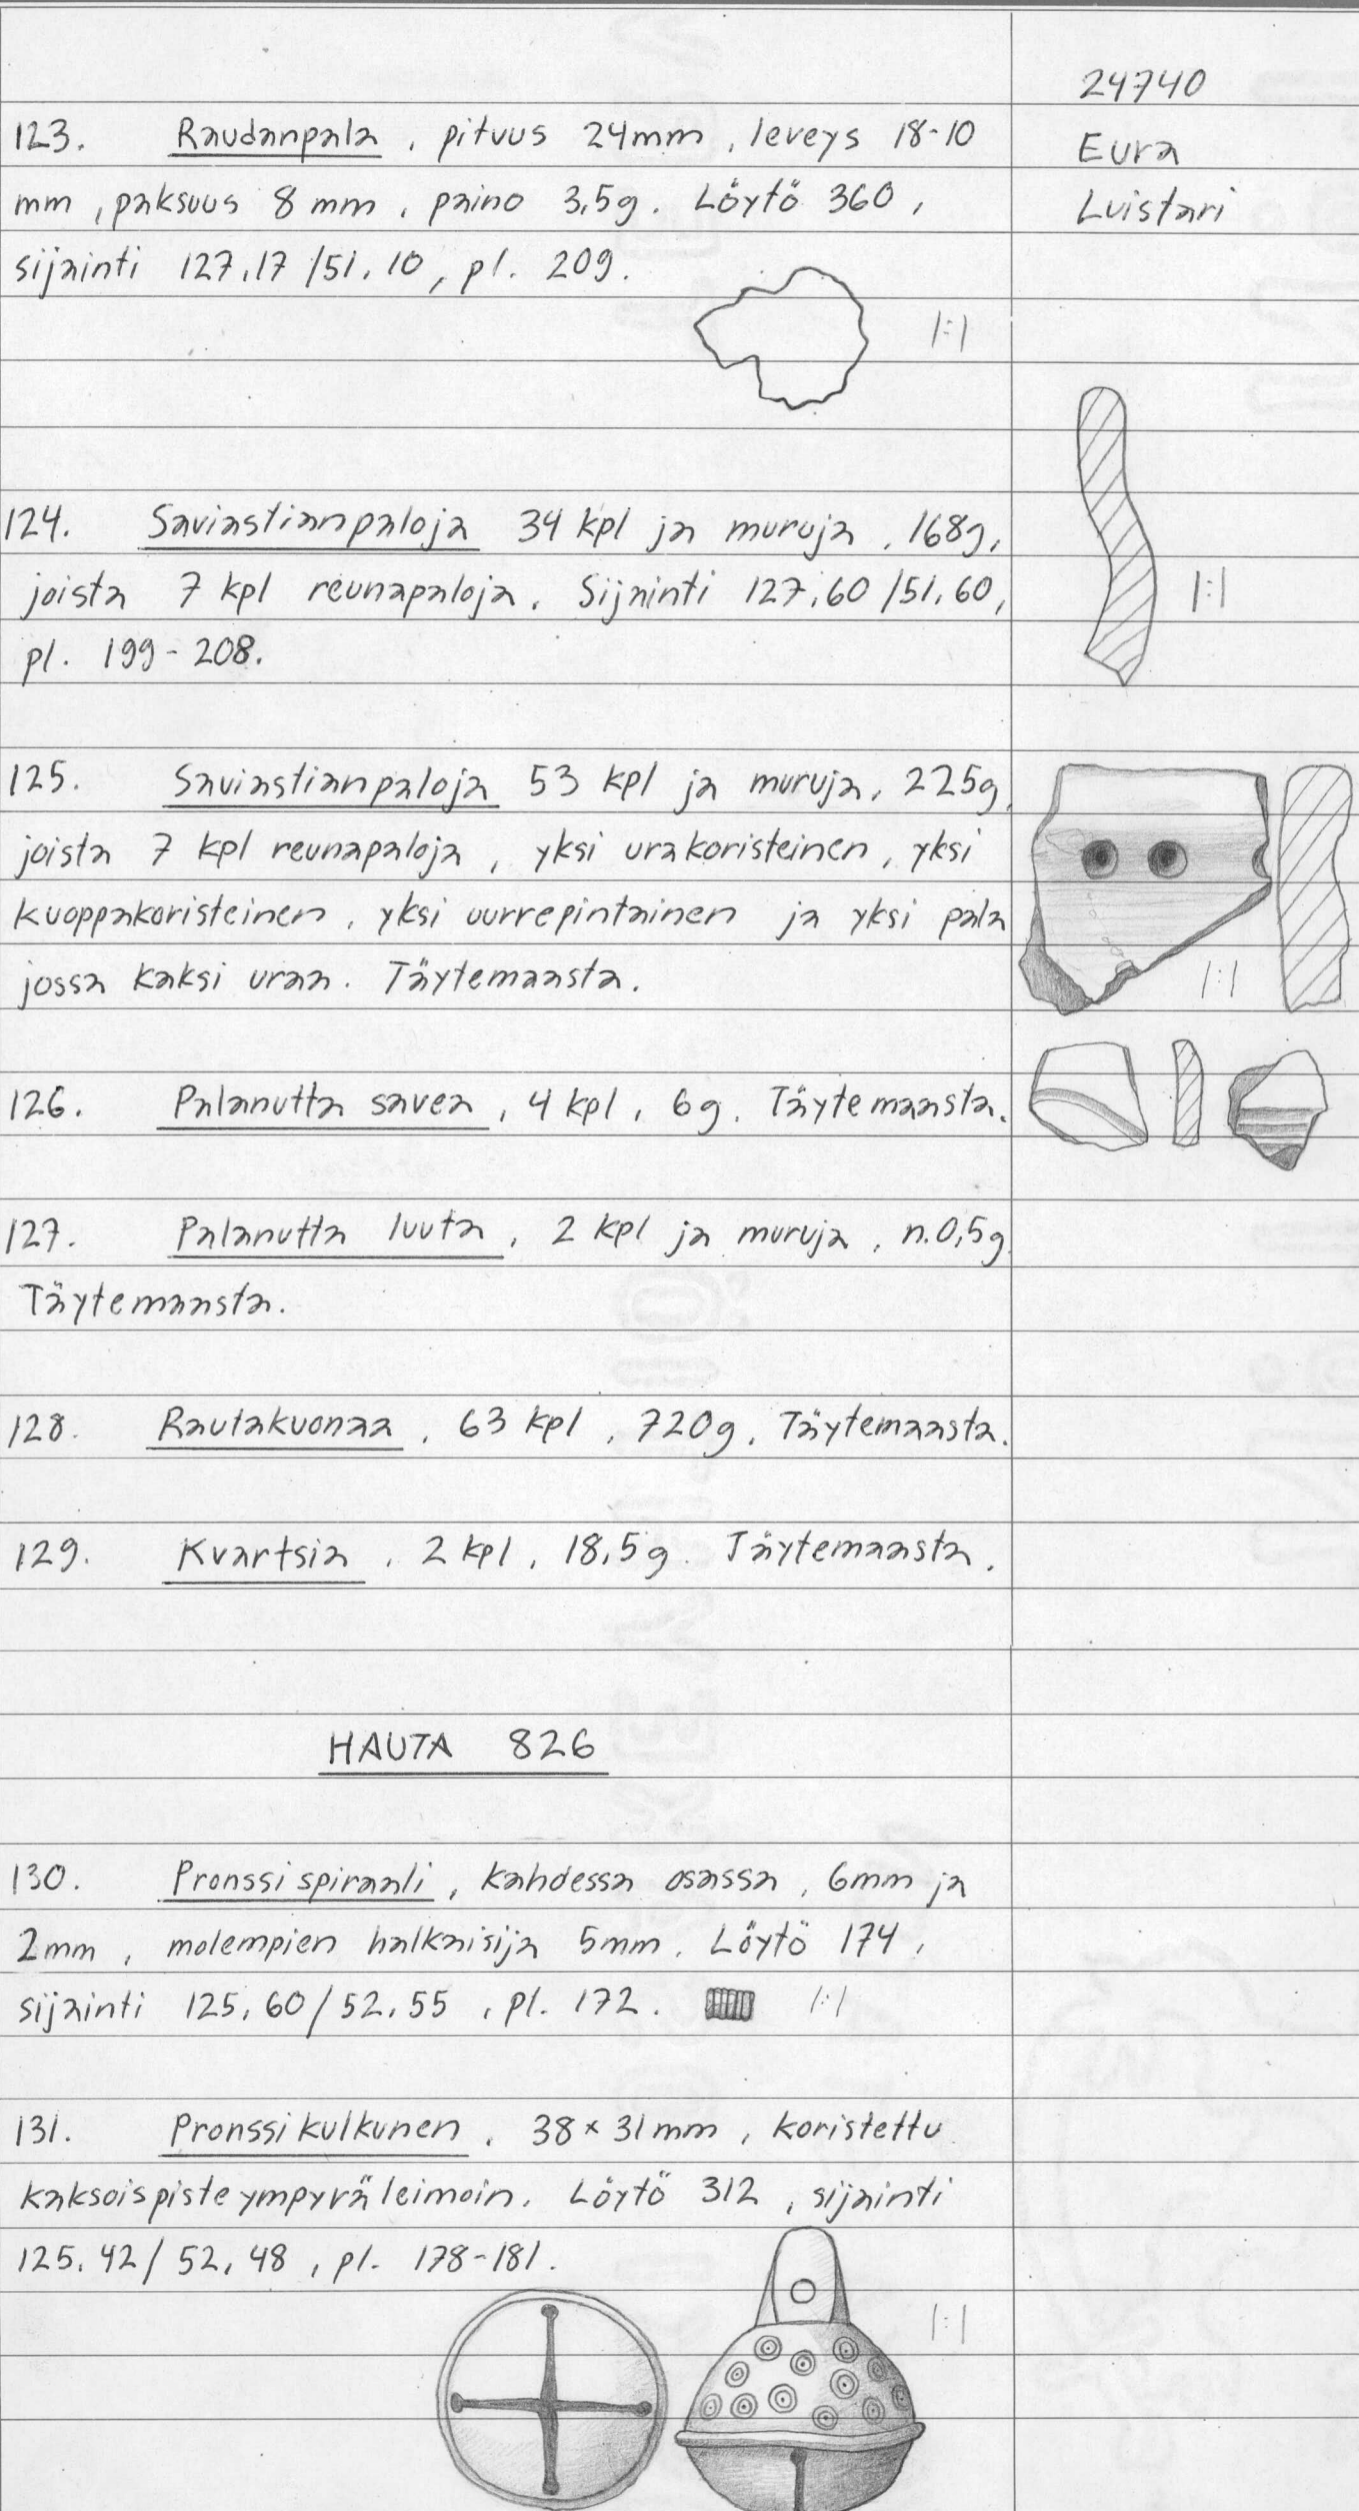 24740
Eura
Luistari
123. Raudanpala, pituus 24mm, leveys 18-10
mm, paksuus 8 mm, paino 3,5g. Löytö 360,
sijainti 127,17 /51,10, pl. 209.
1:1
124. Saviastianpaloja 34 kpl ja muruja, 168g,
joista 7 kpl reunapaloja. Sijainti 127,60 /51,60,
pl. 199-208.
1:1
125. Saviastianpaloja 53 kpl ja muruja, 225g,
joista 7 kpl reunapaloja, yksi urakoristeinen, yksi
kuoppakoristeinen, yksi uurrepintainen ja yksi pala
jossa kaksi uraa. Täytemaasta.
1:1
126. Palanutta savea, 4 kpl, 6g. Täytemaasta.
127. Palanutta luuta, 2 kpl ja muruja, n.0,5g
Täytemaasta.
128. Rautakuonaa, 63 kpl, 720g. Täytemaasta.
129. Kvartsia, 2 kpl, 18,5g. Täytemaasta.
HAUTA 826
130. Pronssispiraali, kahdessa osassa, 6mm ja
2mm, molempien halkaisija 5mm. Löytö 174,
sijainti 125,60/52,55, pl. 172. 1:1
131. Pronssikulkunen, 38x31mm, koristettu
kaksoispisteympyräleimoin. Löytö 312, sijainti
125,42/52,48, pl. 178-181.
1:1